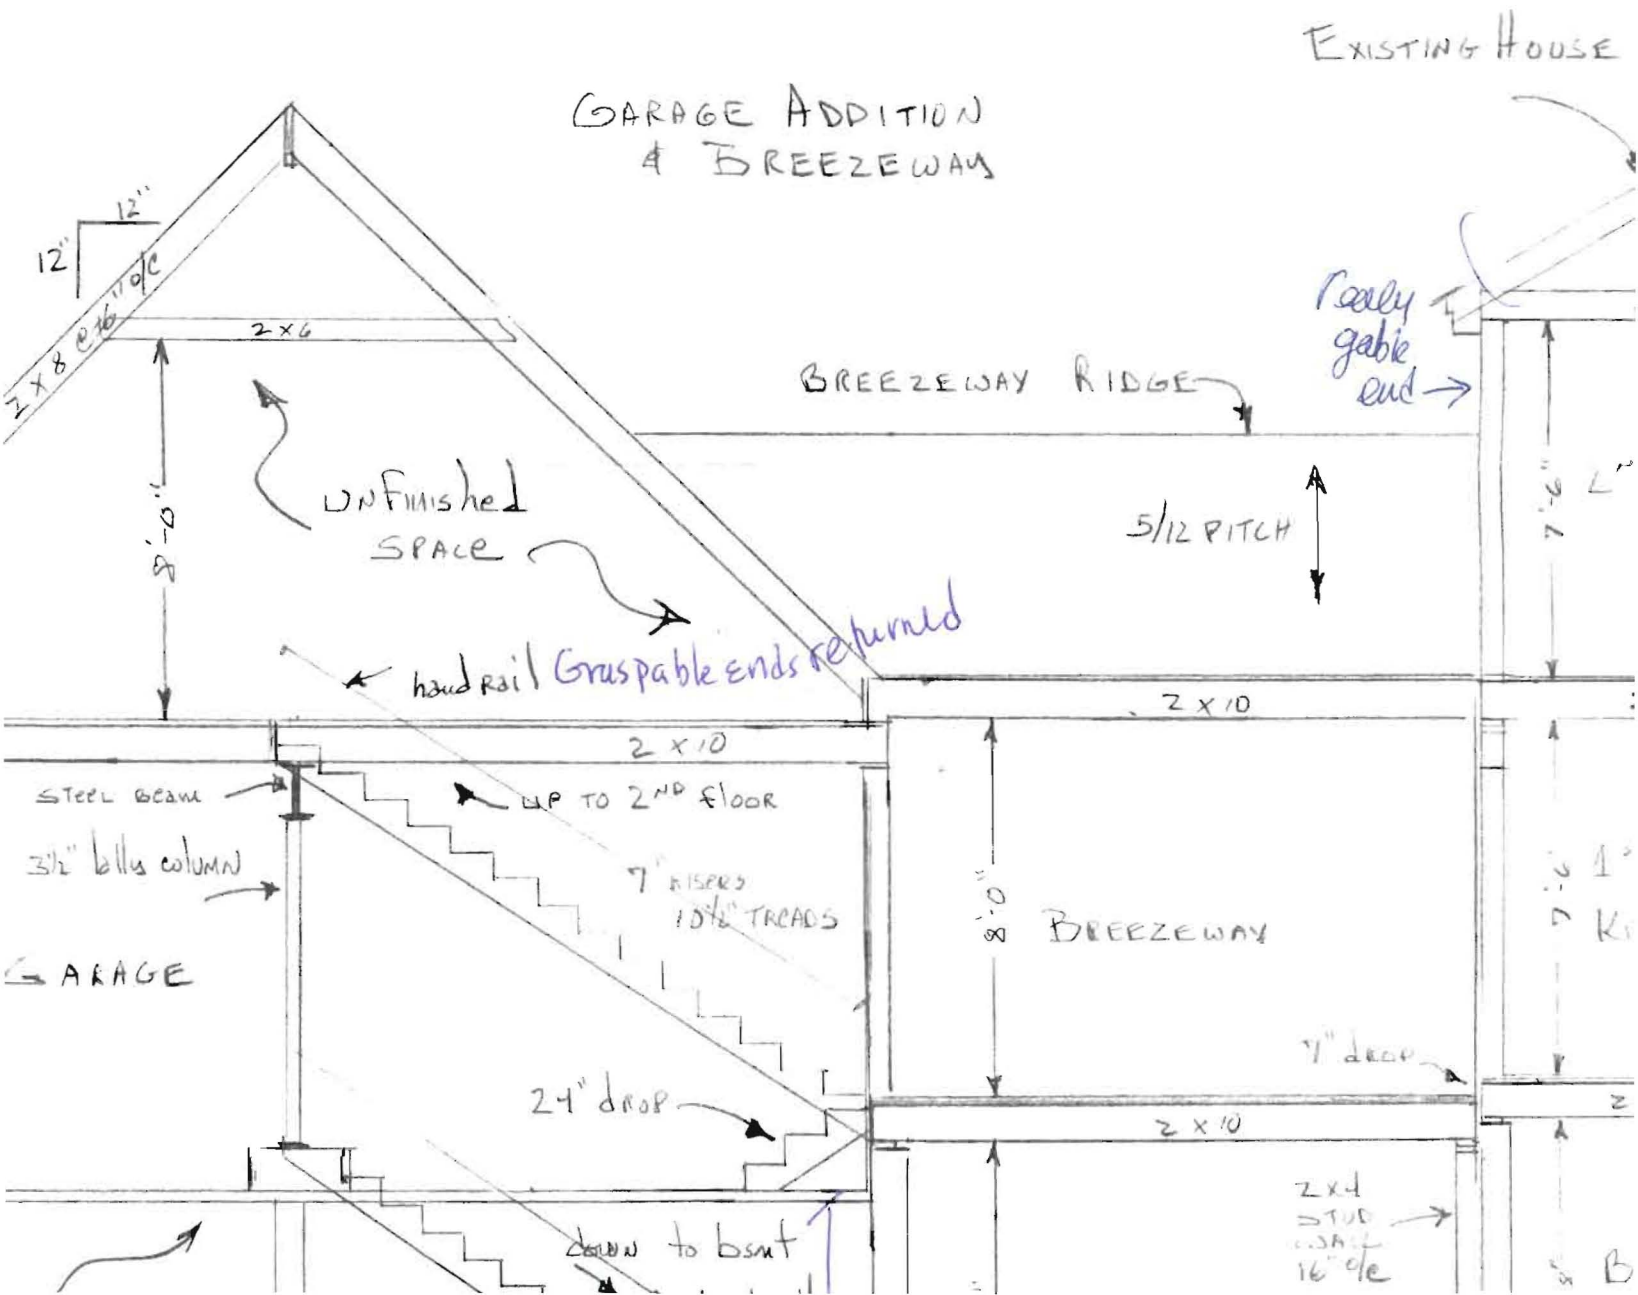 EXISTING HOUSE
GARAGE ADDITION
& BREEZEWAY
12"
12"
2 x 8 @ 16" o/c
2 x 6
really
gable
end
BREEZEWAY RIDGE
UNFinished
SPACe
8'-0"
5/12 PITCH
7'-6"
handrail Graspable ends returned
2 x 10
2 x 10
STEEL BEAM
UP TO 2ND flOOR
3½" lally column
7" RISERS
10½" TREADS
8'-0"
BREEZEWAY
GARAGE
7" drop
24" drop
2 x 10
2
2x4
STUD
WALL
16" o/c
down to bsmt
B